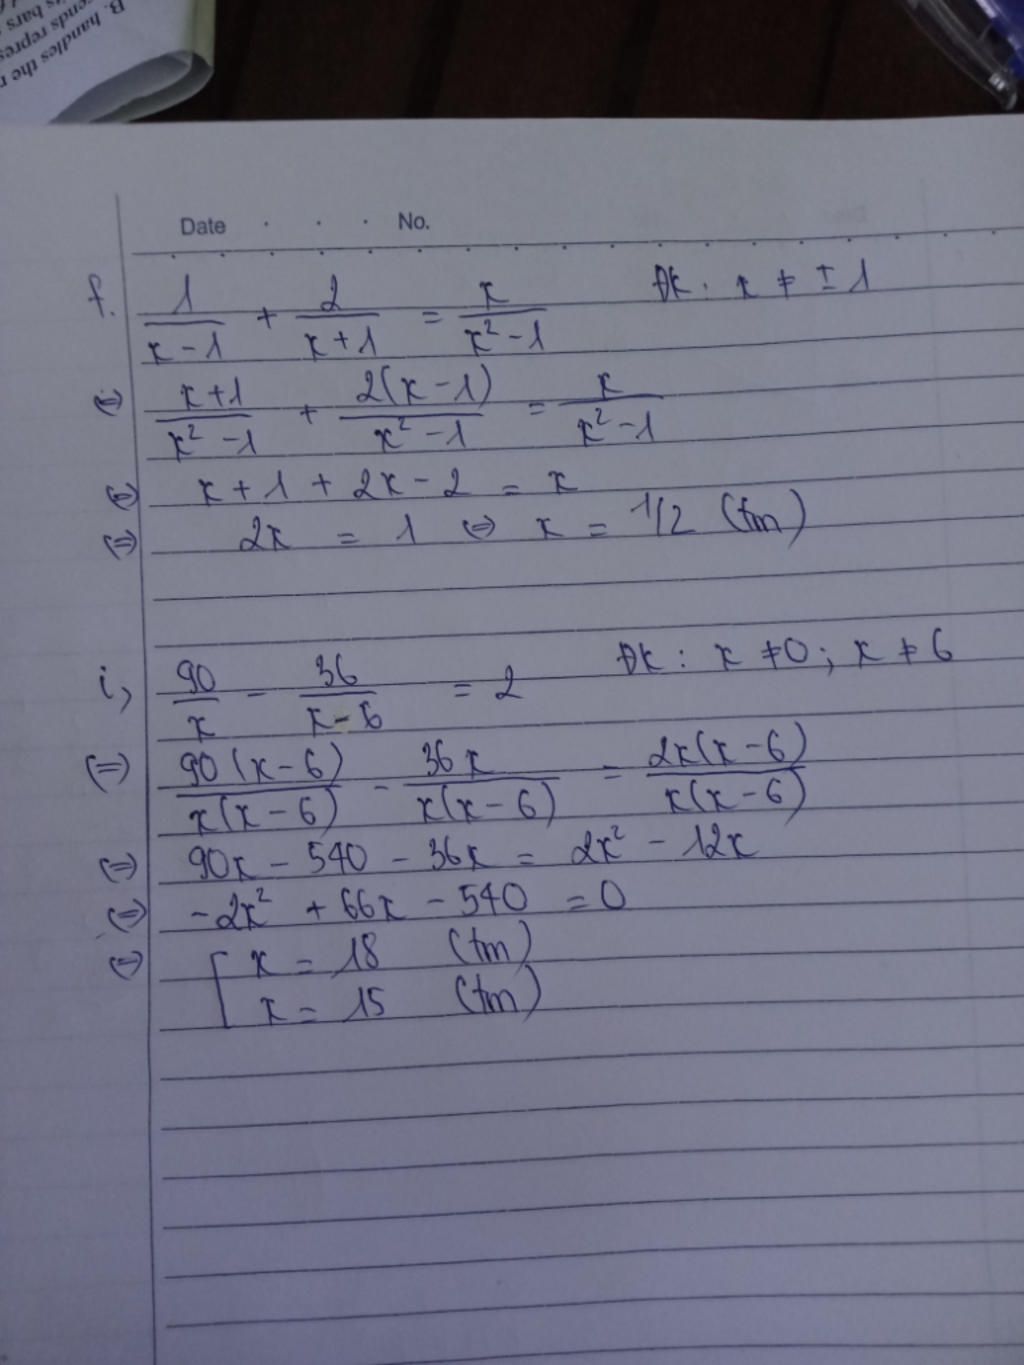 B. handles the r
ends repres
s bars
Date . . . No.
f. 1/(x-1) + 2/(x+1) = x/(x²-1) ĐK: x ≠ ±1
(=) (x+1)/(x²-1) + 2(x-1)/(x²-1) = x/(x²-1)
(=) x + 1 + 2x - 2 = x
(=) 2x = 1 (=) x = 1/2 (tm)
i, 90/x - 36/(x-6) = 2 ĐK: x ≠ 0; x ≠ 6
(=) 90(x-6)/x(x-6) - 36x/x(x-6) = 2x(x-6)/x(x-6)
(=) 90x - 540 - 36x = 2x² - 12x
(=) -2x² + 66x - 540 = 0
(=) [ x = 18 (tm)
x = 15 (tm)